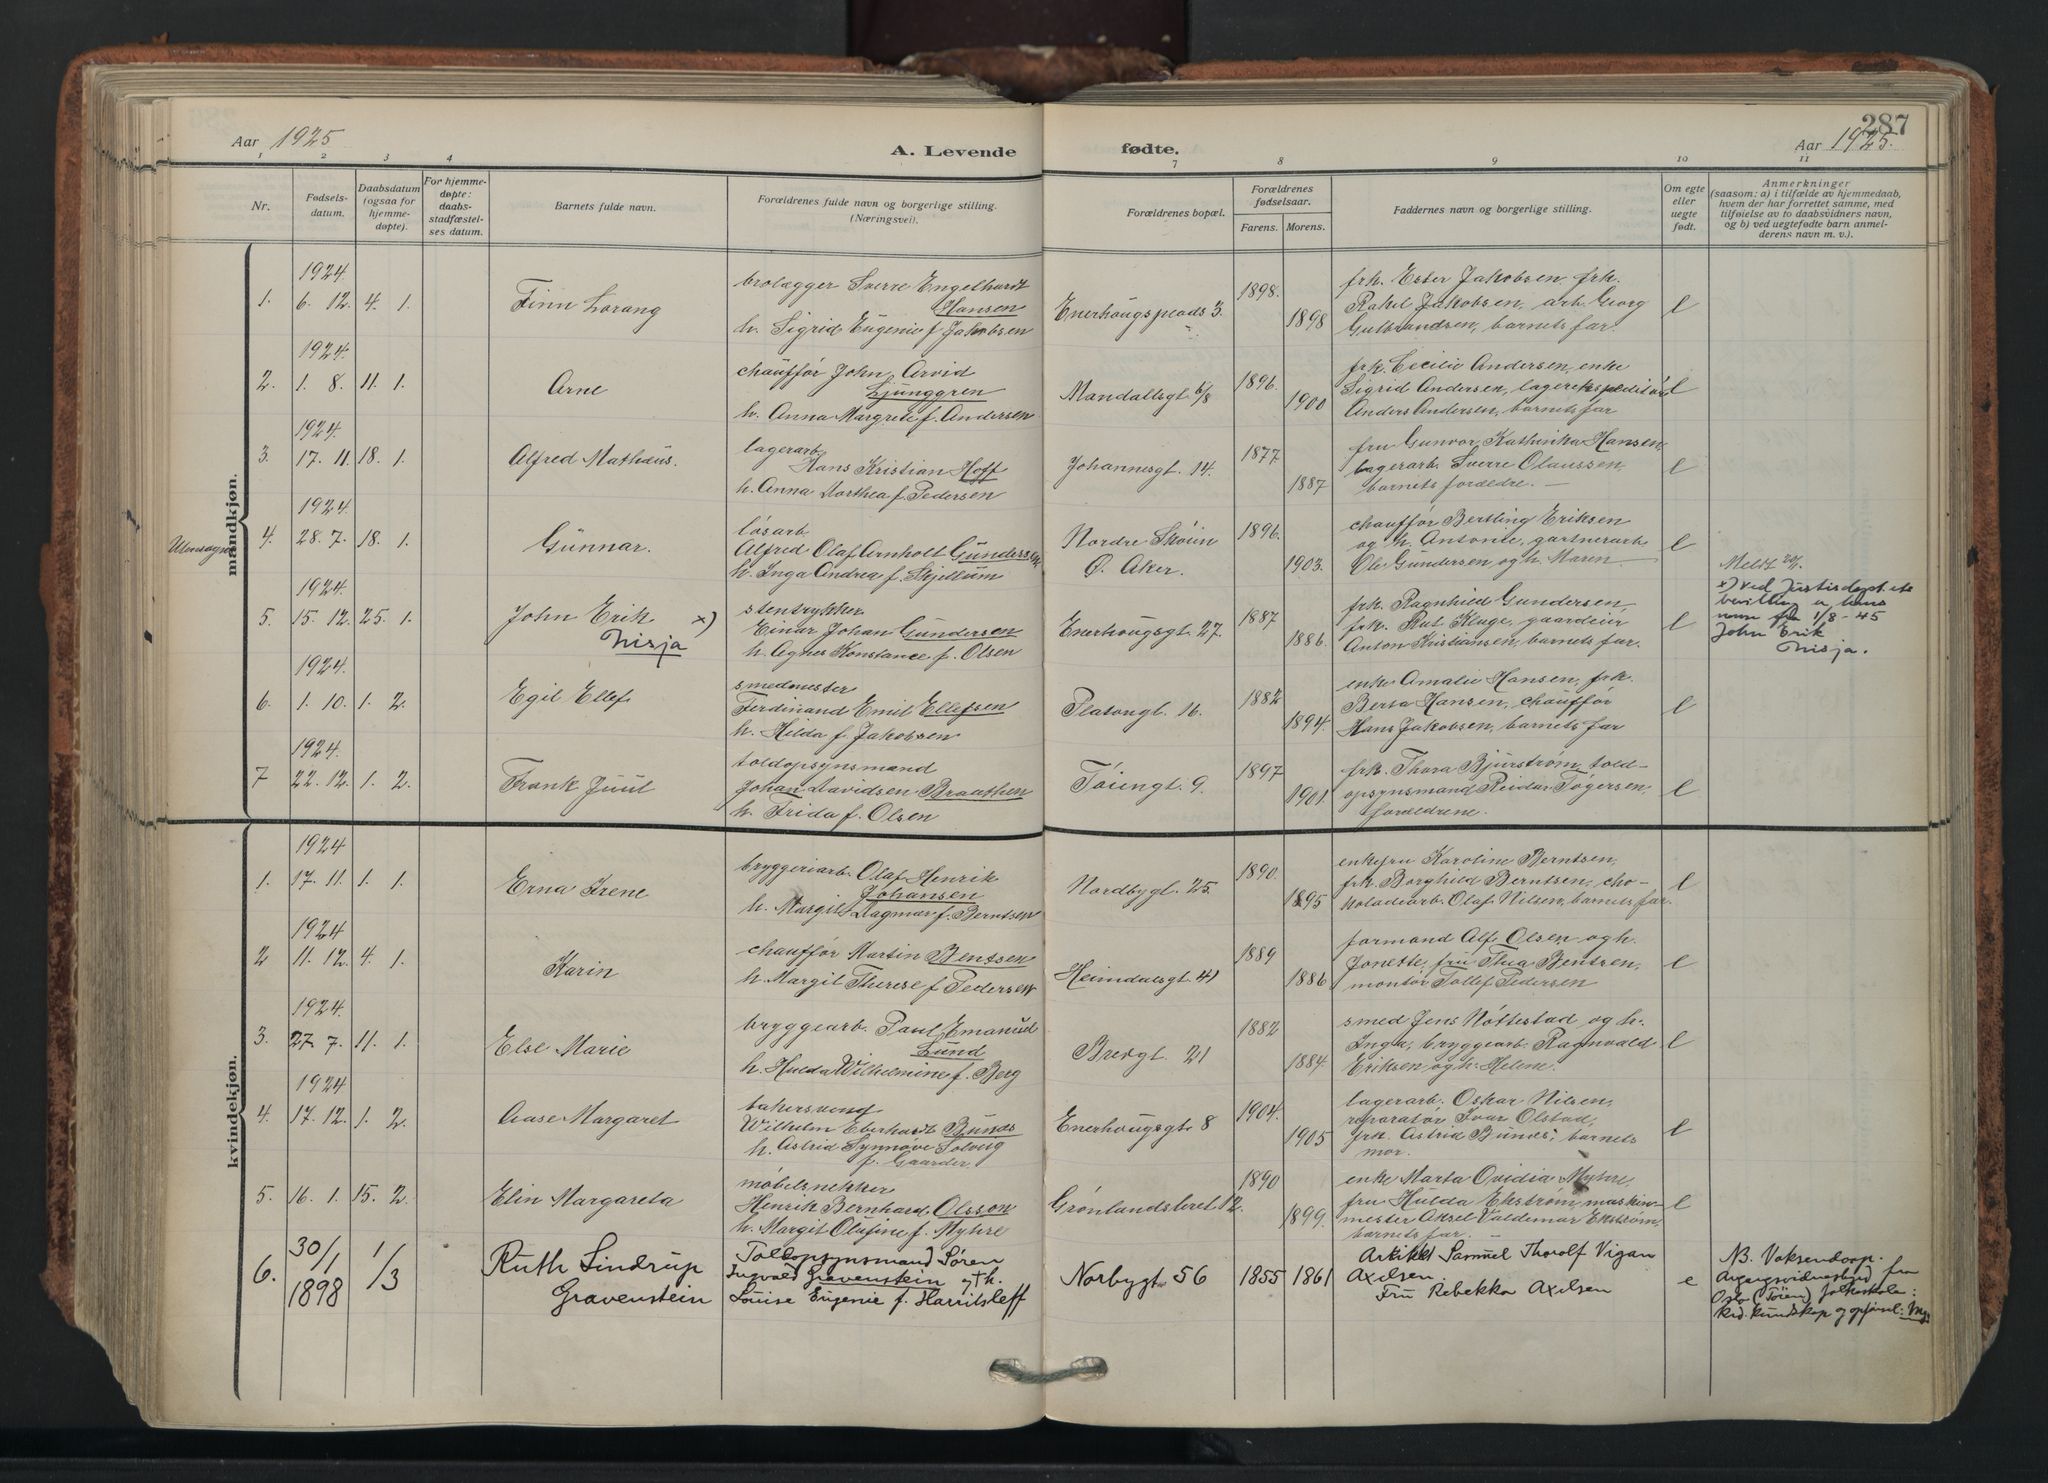 287
Aar 1925
A. Levende fødte.
Aar 1925.
1 2 3 4 7 8 9 10 11
Nr.
Fødsels-
datum.
Daabsdatum
(ogsaa for
hjemme-
døpte).
For hjemme-
døpte:
daabs-
stadfæstel-
ses datum.
Barnets fulde navn.
Forældrenes fulde navn og borgerlige stilling.
(Næringsvei).
Forældrenes bopæl.
Forældrenes
fødselsaar.
Farens. Morens.
Faddernes navn og borgerlige stilling.
Om egte
eller
uegte
født.
Anmerkninger
(saasom: a) i tilfælde av hjemmedaab,
hvem der har forrettet samme, med
tilføielse av to daabsvidners navn,
og b) ved uegtefødte barn anmel-
derens navn m. v.).
mandkjøn.
1924
1. 6. 12. 4. 1.
Finn Lorang
brolægger Sverre Engelhardt
Hansen
h. Sigrid Eugenie f. Jakobsen
Enerhougsplads 3.
1898. 1898
frk. Ester Jakobsen, frk.
Rakel Jakobsen, arb. Georg
Gulbrandsen, barnets far.
e
1924.
2. 1. 8. 11. 1.
Arne
chauffør John Arvid
Ljunggren
h. Anna Margrete f. Andersen
Mandallsgt 6/8
1896. 1900
frk. Cecilie Andersen, enke
Sigrid Andersen, lagerekspeditør
Anders Andersen, barnets far
e
1924.
3. 17. 11. 18. 1.
Alfred Mathæus.
lagerarb.
Hans Kristian Hoff
h. Anna Dorthea f. Pedersen
Johannesgt. 14.
1877 1887
fru Gunvor Kathinka Hansen,
lagerarb. Sverre Olaussen,
barnets forældre.
e
1924
4. 28. 7. 18. 1.
Gunnar.
løsarb.
Alfred Olaf Arnholt Gundersen
h. Inga Andrea f. Skjellum
Nordre Skøien
Ø. Aker.
1896. 1903.
chauffør Bertling Eriksen
og h. Antonie, gartnerarb.
Ole Gundersen og h. Maren
e
1924
5. 15. 12. 25. 1.
John Erik x)
Nisja
stentrykker
Einar Johan Gundersen
h. Agnes Konstance f. Olsen
Enerhougsgt. 27
1887 1886.
frk. Ragnhild Gundersen,
frk. Rut Kluge, gaardeier
Anton Kristiansen, barnets far.
e
x) ved Justisdept.ets
bevilling
1/8-45
John Erik
Nisja.
1924.
6. 1. 10. 1. 2.
Egil Ellef
smedmester
Ferdinand Emil Ellefsen
h. Hilda f. Jakobsen
Platongt. 16.
1882 1894.
enke Amalie Hansen, frk.
Berta Hansen, chauffør
Hans Jakobsen, barnets far
e
1924.
7 22. 12. 1. 2.
Frank Juul
toldopsynsmand
Johan Davidsen Braathen
h. Frida f. Olsen
Tøiengt. 9.
1897 1901.
frk. Thora Bjurstrøm, told-
opsynsmand Reidar Tøgersen,
forældrene.
e
kvindekjøn.
1924
1. 17. 11. 1. 1.
Erna Irene
bryggeriarb. Olaf Henrik
Johansen
h. Margit Dagmar f. Berntsen
Nordbygt. 25.
1890. 1895
enkefru Karoline Berntsen,
frk. Borghild Berntsen, cho-
koladearb. Olaf Nilsen, barnets far.
e
1924
2 11. 12. 4. 1.
Karin
chauffør Martin Bentsen
h. Margit Therese f. Pedersen
Heimdalsgt. 41
1889 1886
formand Alf Olsen og h.
Jonette, fru Thea Bentzen,
montør Tollef Pedersen
e
1924.
3. 27. 7. 11. 1.
Else Marie
bryggearb. Paul Emanuel
Lund
h. Hulda Wilhelmine f. Berg
Bredgt. 21
1882 1884.
smed Jens Nøttestad og h.
Inga, bryggearb. Ragnvald
Eriksen og h. Helene.
e
1924
4. 17. 12. 1. 2.
Aase Margaret
bakersvend
Wilhelm Eberhardt Bunds
h. Astrid Synnøve Solveig
f. Gaarder.
Enerhougsgt. 8
1904. 1905
lagerarb. Oskar Nilsen,
reparatør Ivar Olstad,
frk. Astrid Bunds, barnets
mor.
e
5. 16. 1. 15. 2.
Elin Margareta
møbelsnekker
Henrik Bernhard Olsson
h. Margit Olufine f. Myhre
Grønlandsleret 12.
1890 1899.
enke Marta Ovidia Myhre,
fru Hulda Ekstrøm, maskin-
mester Aksel Valdemar Ekstrøm,
barnets far.
e
6. 30/1 1898 1/3
Ruth Lindrup
Gravenstein
Toldopsynsmand Søren
Ingvald Gravenstein og h.
Louise Eugenie f. Harritsleff
Norbygt 56
1855 1861
Arkitekt Samuel Thorolf Vigan
Axelsen.
Fru Rebekka Axelsen
e
NB. Voksendaap.
Avgangsvidnesbyrd fra
Oslo (Tøien) folkeskole:
krd. kundskap og opførsel: Mg.